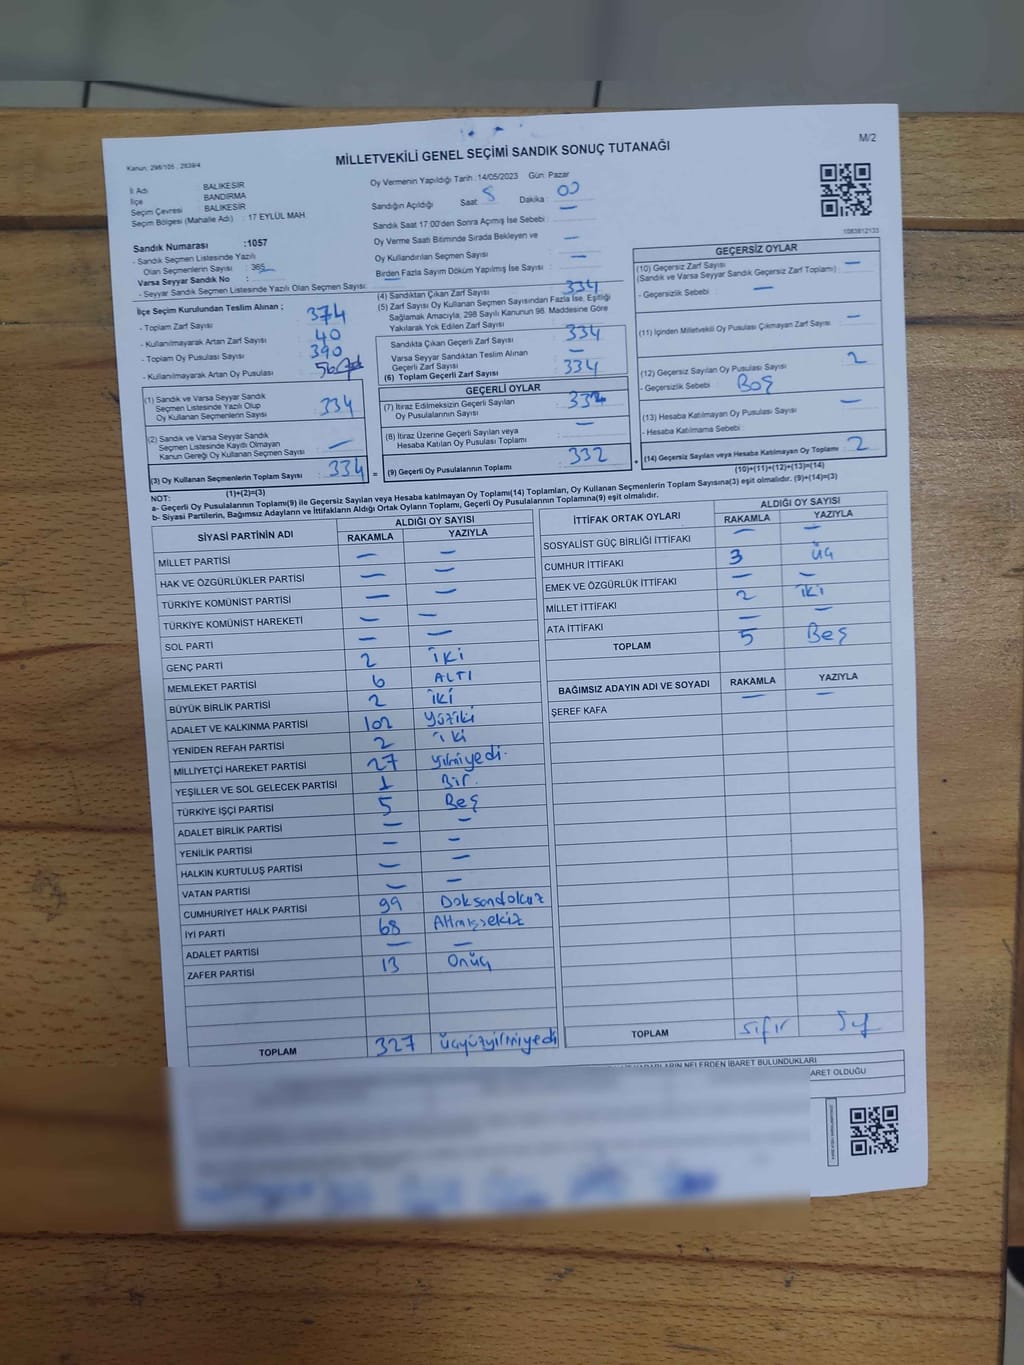 Kanun: 298/105 ; 2839/4
MİLLETVEKİLİ GENEL SEÇİMİ SANDIK SONUÇ TUTANAĞI
M/2
İl Adı BALIKESİR
İlçe BANDIRMA
Seçim Çevresi BALIKESİR
Seçim Bölgesi (Mahalle Adı) : 17 EYLÜL MAH.
Sandık Numarası :1057
- Sandık Seçmen Listesinde Yazılı
Olan Seçmenlerin Sayısı : 365
Varsa Seyyar Sandık No :
- Seyyar Sandık Seçmen Listesinde Yazılı Olan Seçmen Sayısı:
Oy Vermenin Yapıldığı Tarih :14/05/2023 Gün: Pazar
Sandığın Açıldığı Saat Dakika : 00
Sandık Saat 17.00'den Sonra Açmış İse Sebebi : —
Oy Verme Saati Bitiminde Sırada Bekleyen ve
Oy Kullandırılan Seçmen Sayısı : —
Birden Fazla Sayım Döküm Yapılmış İse Sayısı : —
1083812133
İlçe Seçim Kurulundan Teslim Alınan ;
- Toplam Zarf Sayısı : 374
- Kullanılmayarak Artan Zarf Sayısı : 40
- Toplam Oy Pusulası Sayısı : 390
- Kullanılmayarak Artan Oy Pusulası :
(1) Sandık ve Varsa Seyyar Sandık
Seçmen Listesinde Yazılı Olup
Oy Kullanan Seçmenlerin Sayısı : 334
(2) Sandık ve Varsa Seyyar Sandık
Seçmen Listesinde Kayıtlı Olmayan
Kanun Gereği Oy Kullanan Seçmen Sayısı : —
(3) Oy Kullanan Seçmenlerin Toplam Sayısı : 334
(1)+(2)=(3)
(4) Sandıktan Çıkan Zarf Sayısı : 334
(5) Zarf Sayısı Oy Kullanan Seçmen Sayısından Fazla İse, Eşitliği
Sağlamak Amacıyla, 298 Sayılı Kanunun 98. Maddesine Göre
Yakılarak Yok Edilen Zarf Sayısı :
Sandıkta Çıkan Geçerli Zarf Sayısı : 334
Varsa Seyyar Sandıktan Teslim Alınan
Geçerli Zarf Sayısı : —
(6) Toplam Geçerli Zarf Sayısı : 334
GEÇERLİ OYLAR
(7) İtiraz Edilmeksizin Geçerli Sayılan
Oy Pusulalarının Sayısı : 332
(8) İtiraz Üzerine Geçerli Sayılan veya
Hesaba Katılan Oy Pusulası Toplamı : —
= (9) Geçerli Oy Pusulalarının Toplamı : 332
GEÇERSİZ OYLAR
(10) Geçersiz Zarf Sayısı : —
(Sandık ve Varsa Seyyar Sandık Geçersiz Zarf Toplamı)
- Geçersizlik Sebebi : —
(11) İçinden Milletvekili Oy Pusulası Çıkmayan Zarf Sayısı : —
(12) Geçersiz Sayılan Oy Pusulası Sayısı : 2
- Geçersizlik Sebebi : Boş
(13) Hesaba Katılmayan Oy Pusulası Sayısı : —
- Hesaba Katılmama Sebebi :
+ (14) Geçersiz Sayılan veya Hesaba Katılmayan Oy Toplamı : 2
(10)+(11)+(12)+(13)=(14)
NOT:
a- Geçerli Oy Pusulalarının Toplamı(9) ile Geçersiz Sayılan veya Hesaba katılmayan Oy Toplamı(14) Toplamları, Oy Kullanan Seçmenlerin Toplam Sayısına(3) eşit olmalıdır. (9)+(14)=(3)
b- Siyasi Partilerin, Bağımsız Adayların ve İttifakların Aldığı Ortak Oyların Toplamı, Geçerli Oy Pusulalarının Toplamına(9) eşit olmalıdır.
SİYASİ PARTİNİN ADI ALDIĞI OY SAYISI
RAKAMLA YAZIYLA
MİLLET PARTİSİ — —
HAK VE ÖZGÜRLÜKLER PARTİSİ — —
TÜRKİYE KOMÜNİST PARTİSİ — —
TÜRKİYE KOMÜNİST HAREKETİ — —
SOL PARTİ — —
GENÇ PARTİ 2 iki
MEMLEKET PARTİSİ 6 ALTI
BÜYÜK BİRLİK PARTİSİ 2 iki
ADALET VE KALKINMA PARTİSİ 102 Yüziki
YENİDEN REFAH PARTİSİ 2 iki
MİLLİYETÇİ HAREKET PARTİSİ 27 yirmiyedi.
YEŞİLLER VE SOL GELECEK PARTİSİ 1 Bir.
TÜRKİYE İŞÇİ PARTİSİ 5 Beş
ADALET BİRLİK PARTİSİ — —
YENİLİK PARTİSİ — —
HALKIN KURTULUŞ PARTİSİ — —
VATAN PARTİSİ — —
CUMHURİYET HALK PARTİSİ 99 Doksandokuz
İYİ PARTİ 68 Altmışsekiz
ADALET PARTİSİ — —
ZAFER PARTİSİ 13 Onüç
TOPLAM 327 üçyüzyirmiyedi
İTTİFAK ORTAK OYLARI ALDIĞI OY SAYISI
RAKAMLA YAZIYLA
SOSYALİST GÜÇ BİRLİĞİ İTTİFAKI — —
CUMHUR İTTİFAKI 3 üç
EMEK VE ÖZGÜRLÜK İTTİFAKI — —
MİLLET İTTİFAKI 2 iki
ATA İTTİFAKI — —
TOPLAM 5 Beş
BAĞIMSIZ ADAYIN ADI VE SOYADI RAKAMLA YAZIYLA
ŞEREF KAFA — —
TOPLAM sıfır
NELERDEN İBARET BULUNDUKLARI
ARET OLDUĞU